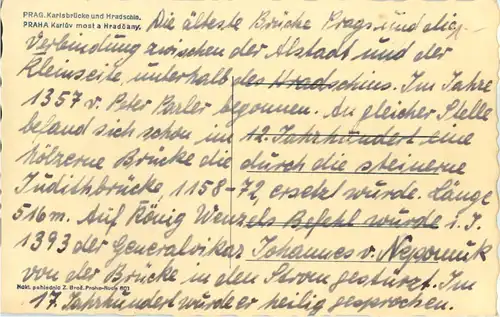 PRAG. Karlsbrücke und Hradschin.
PRAHA Karlův most a Hradčany.
Die älteste Brücke Prags und die
Verbindung zwischen der Altstadt und der
Kleinseite, unterhalb des Hradschins. Im Jahre
1357 v. Peter Parler begonnen. An gleicher Stelle
befand sich schon im 12. Jahrhundert eine
hölzerne Brücke die durch die steinerne
Judithbrücke 1158-72, ersetzt wurde. Länge
516m. Auf König Wenzels Befehl wurde i. J.
1393 der Generalvikar Johannes v. Nepomuk
von der Brücke in den Strom gestürzt. Im
Nakl. pohlednic Z. Brož, Praha-
17. Jahrhundert wurde er heilig gesprochen.